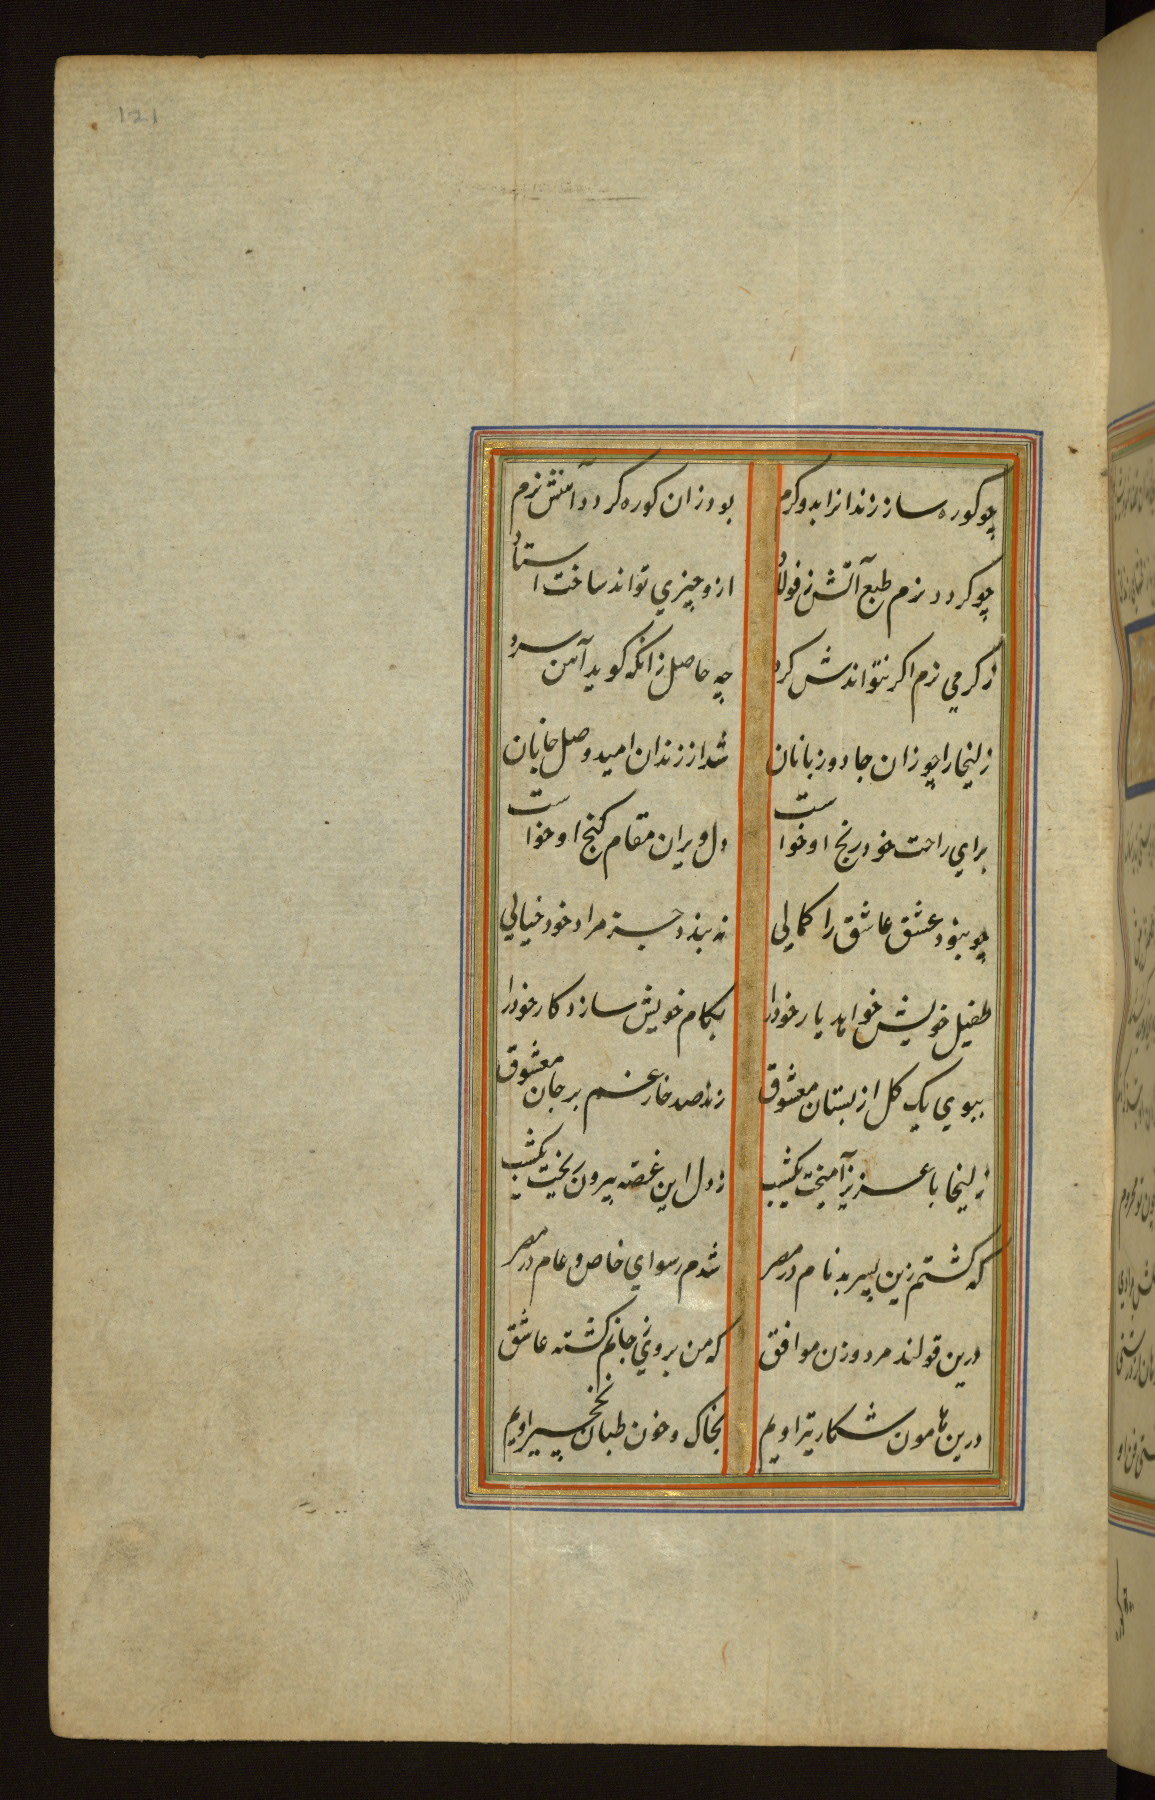 121
چو کوره ساز زندانرا بدو کرم
بود زان کوره کردد آهنش نرم
چو کردد نرم طبع آتش ز فولاد
ازو چیزی تواند ساخت استاد
ز کرمی نرم اکر نتواندش کرد
چه حاصل زانکه کوید آهن سرد
زلیخا را چو زان جادو زبانان
شد از زندان امید وصل جانان
برای راحت خود رنج او خواست
دل ویران مقام کنج او خواست
چو نبود عشق عاشق را کمالی
نه بندد جز مراد خود خیالی
طفیل خویش خواهد یار خود را
بکام خویش سازد کار خود را
ببوی یک کل از بستان معشوق
زند صد خار غم بر جان معشوق
زلیخا با عزیز آمیخت یکشب
ز دل این غصه بیرون ریخت یکشب
که کشتم زین پسر بدنام در مصر
شدم رسوای خاص و عام در مصر
درین قولند مرد و زن موافق
که من بر وی ز جانم کشته عاشق
درین هامون شکار تیر اویم
بخاک و خون طپان نخچیر اویم